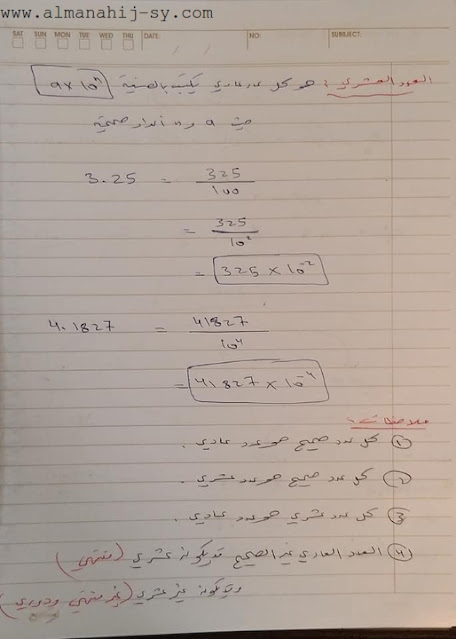 www.almanahij-sy.com
SAT SUN MON TUE WED THU DATE: / / NO: SUBJECT:
العدد العشري : هو كل عدد عادي يكتب بالصيغة a×10ⁿ
حيث a و n أعداد صحيحة
3.25 = 325/100
= 325/10²
= 325 × 10⁻²
4.1827 = 41827/10⁴
= 41827 × 10⁻⁴
ملاحظات :
① كل عدد صحيح هو عدد عادي .
② كل عدد صحيح هو عدد عشري .
③ كل عدد عشري هو عدد عادي .
④ العدد العادي غير الصحيح قد يكون عشري (منتهي)
وقد يكون غير عشري (غير منتهي ودوري)